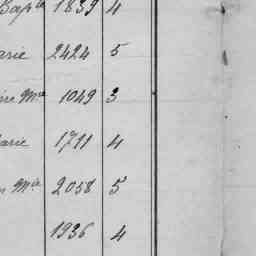 Bapte 1839 4
arie 2424 5
ine Mie 1049 3
arie 1711 4
n Mie 2058 5
1936 4